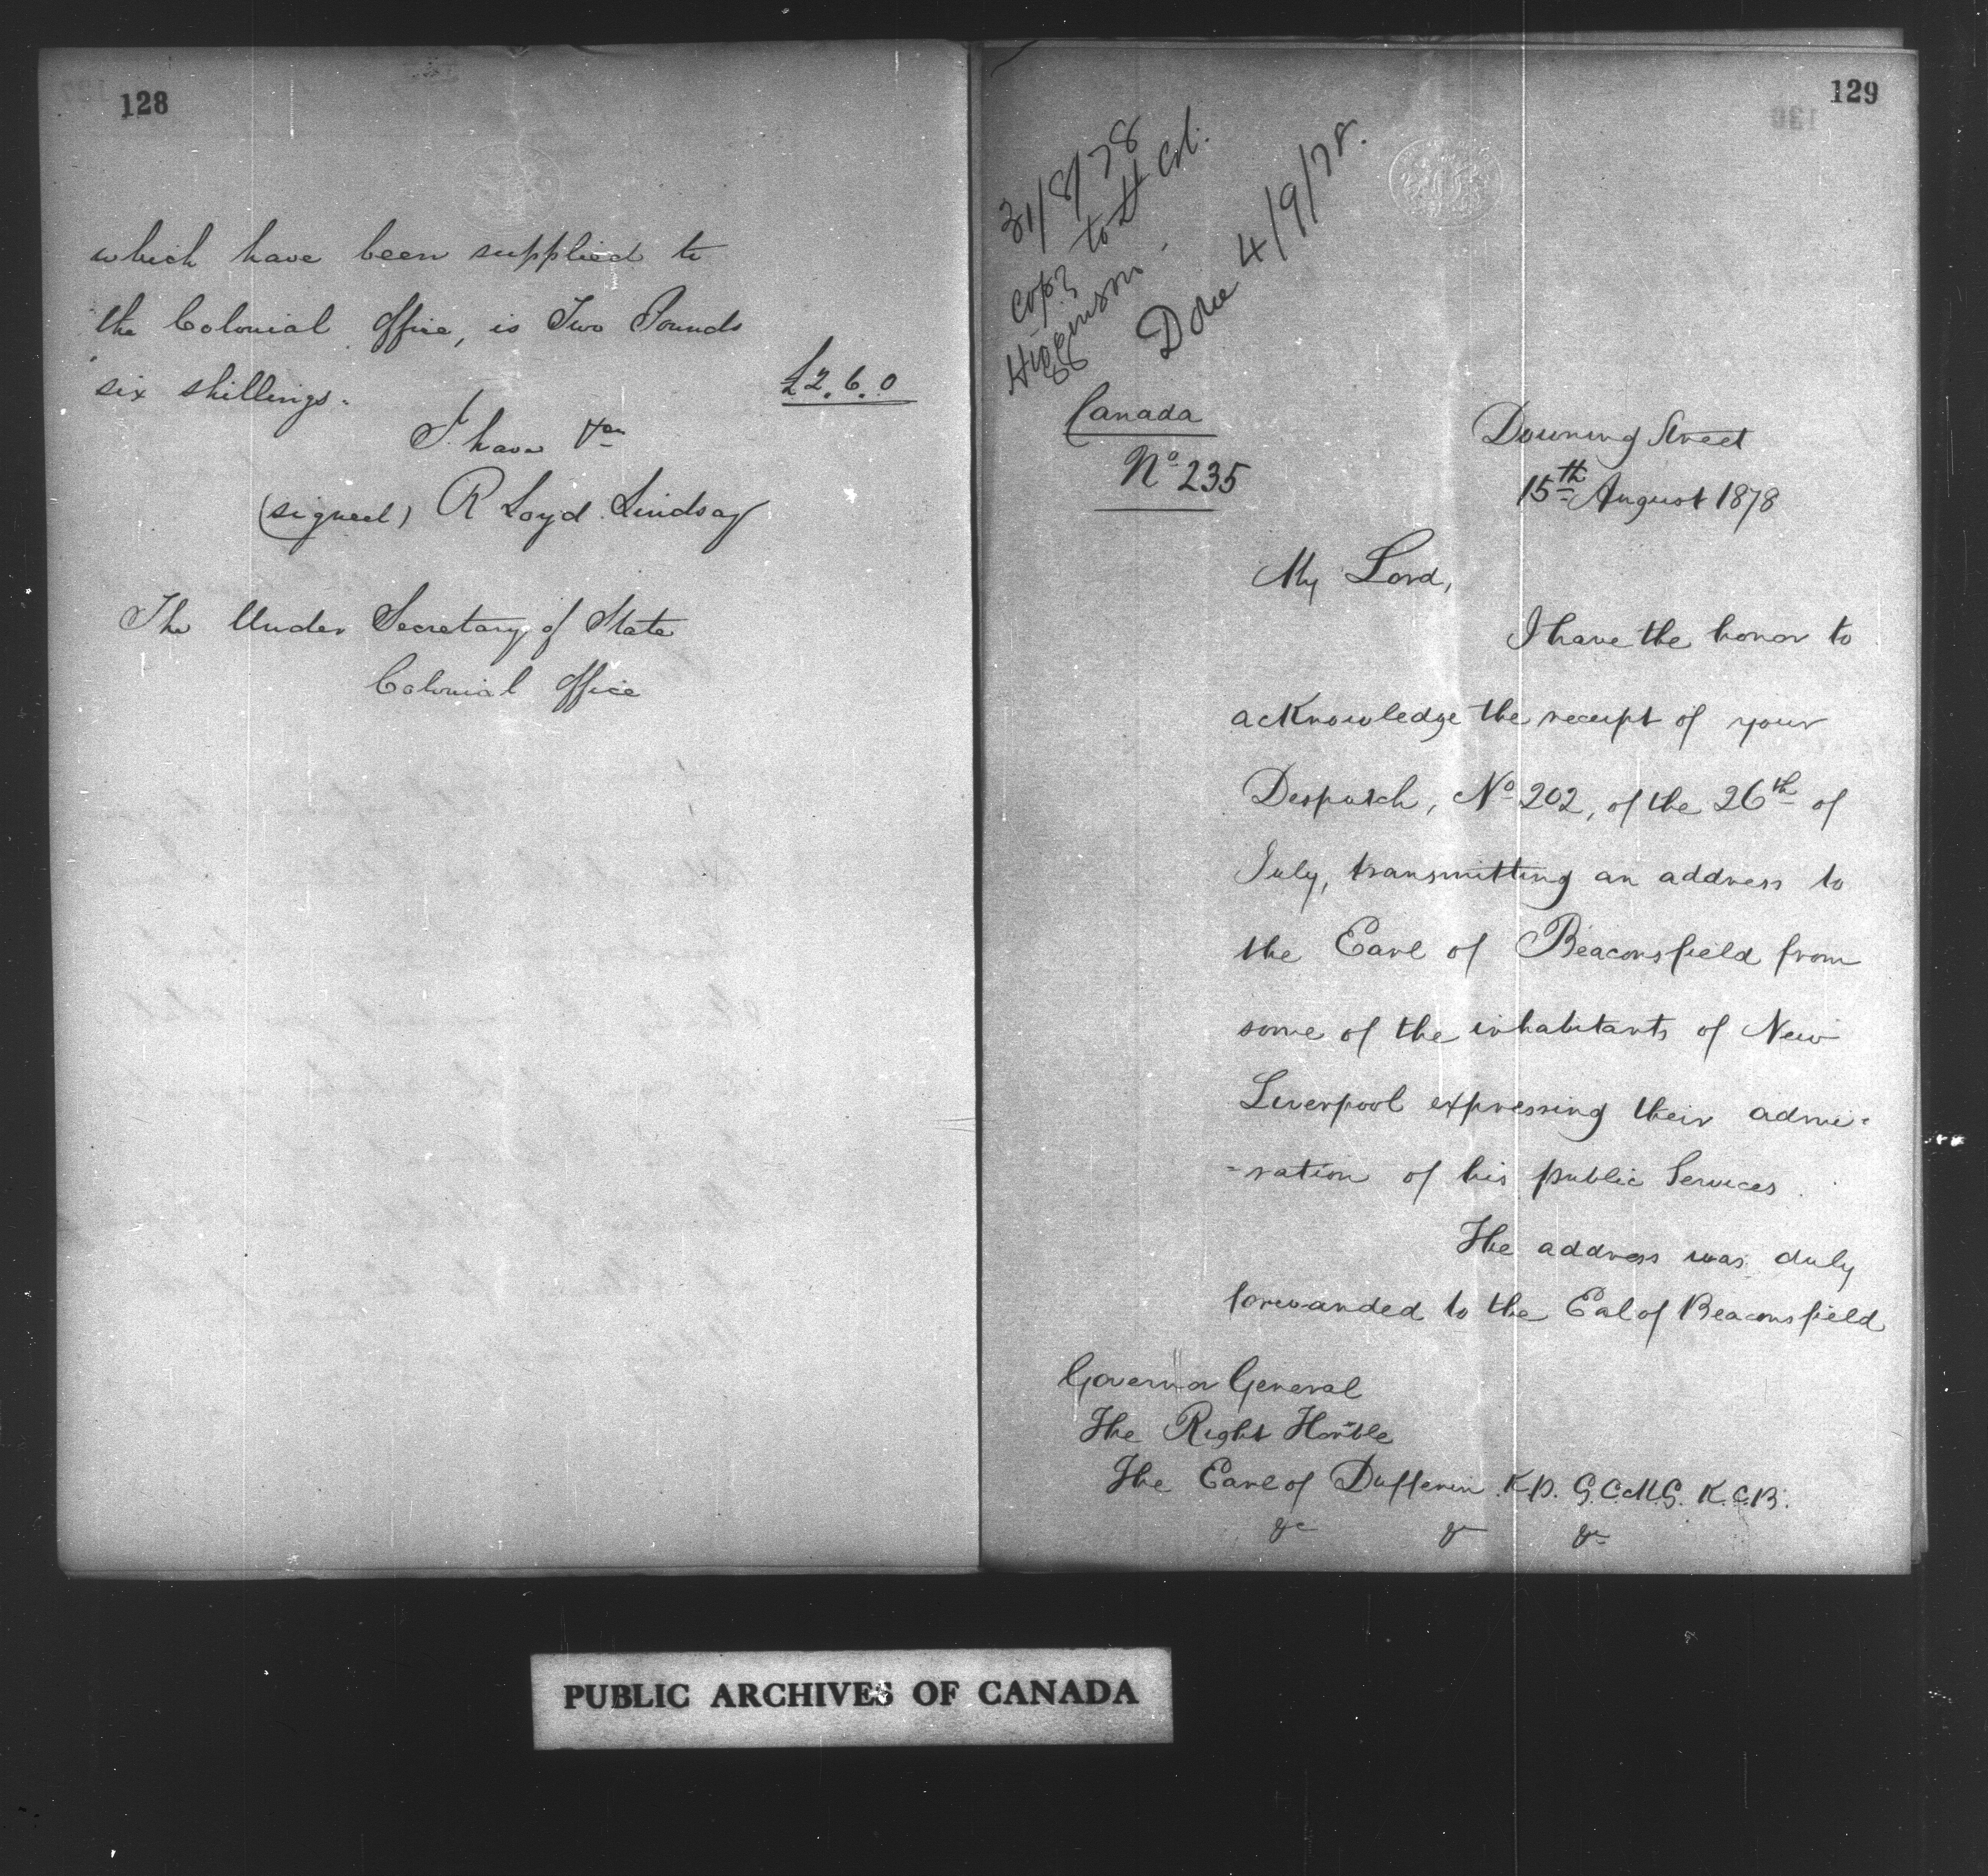 128
which have been supplied to
the Colonial Office, is Two Pounds
six shillings.
£2.6.0
I have &c
(signed) R Loyd Lindsay
The Under Secretary of State
Colonial Office
129
31/8/78
copy to Lt Col:
Higginson.
Done 4/9/78.
Canada
No 235
Downing Street
15th August 1878
My Lord,
I have the honor to
acknowledge the receipt of your
Despatch, No 202, of the 26th of
July, transmitting an address to
the Earl of Beaconsfield from
some of the inhabitants of New
Liverpool expressing their admi-
-ration of his public Services.
The address was duly
forwarded to the Eal of Beaconsfield
Governor General
The Right Honble
The Earl of Dufferin K.P. G.C.M.G. K.C.B.
&c &c &c
PUBLIC ARCHIVES OF CANADA